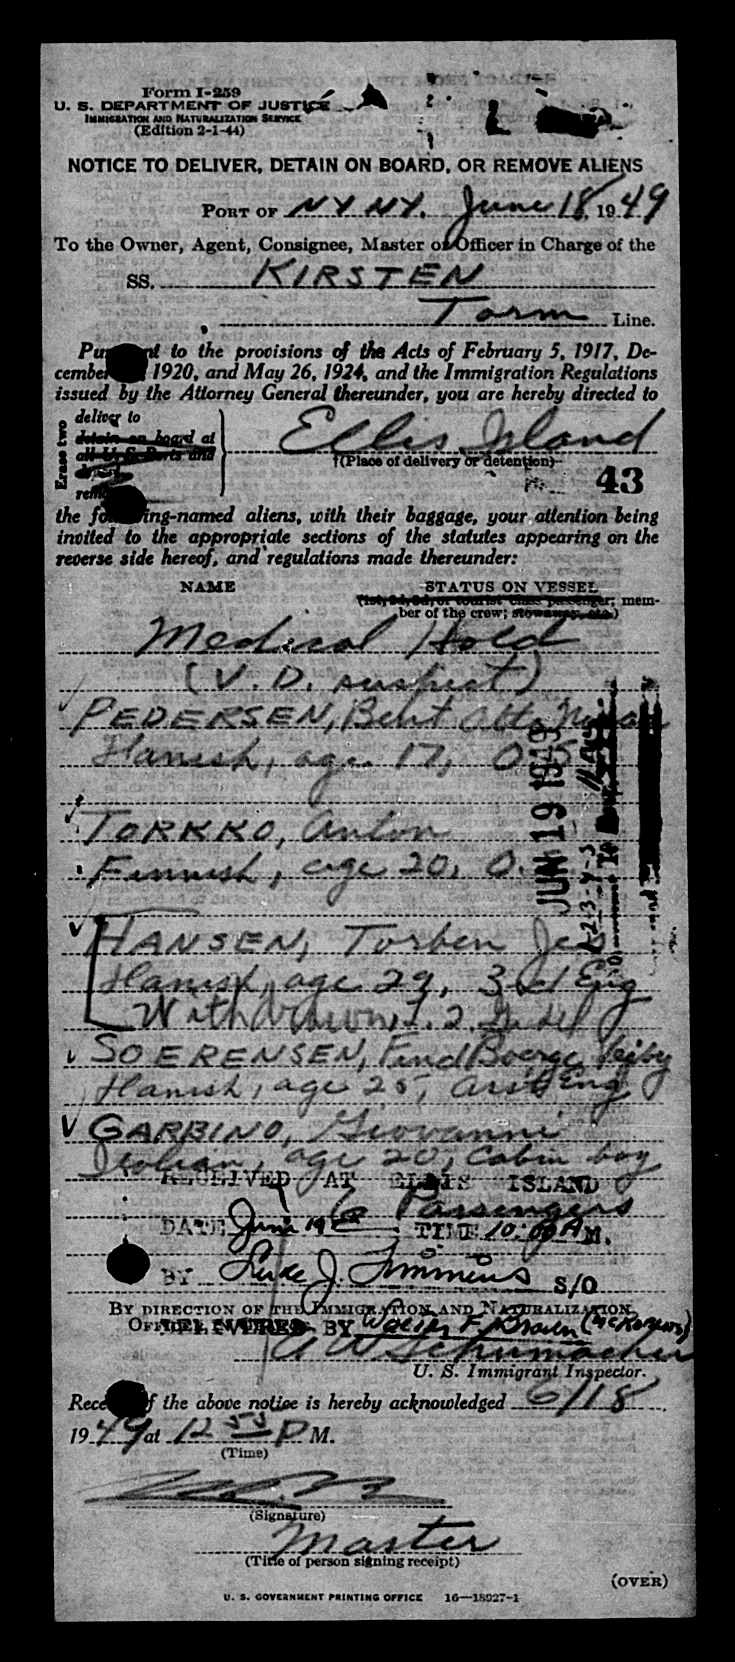 Form I-259
U. S. DEPARTMENT OF JUSTICE
IMMIGRATION AND NATURALIZATION SERVICE
(Edition 2-1-44)
NOTICE TO DELIVER, DETAIN ON BOARD, OR REMOVE ALIENS
PORT OF NY NY. June 18, 1949
To the Owner, Agent, Consignee, Master or Officer in Charge of the
SS. KIRSTEN
Torm Line.
to the provisions of the Acts of February 5, 1917, De-
cember 1920, and May 26, 1924, and the Immigration Regulations
issued by the Attorney General thereunder, you are hereby directed to
deliver to
detain on board at
all U.S. Ports and
Erase two
Ellis Island
†(Place of delivery or detention)
43
the following-named aliens, with their baggage, your attention being
invited to the appropriate sections of the statutes appearing on the
reverse side hereof, and regulations made thereunder:
NAME STATUS ON VESSEL
(1st, 2d, 3d, or tourist class passenger; mem-
ber of the crew; stowaway, etc.)
Medical Hold
(V. D. suspect)
PEDERSEN, Bent Otto
Danish, age 17, O.S.
TORKKO, Anton
Finnish, age 20, O.
JUN 19 1949
HANSEN, Torben
Danish, age 29, 3rd Eng
Withdrawn
SOERENSEN, Find Boerge
Danish, age 25, Asst Eng
GARBINO, Giovanni
Italian, age 20, Cabin boy
RECEIVED AT ELLIS ISLAND
6 Passengers
DATE June 19 TIME 10:00 A M.
BY Luke J. Timmins S/O
BY DIRECTION OF THE IMMIGRATION AND NATURALIZATION
DELIVERED BY Walter F. Brown
A W Schumacher
U. S. Immigrant Inspector.
Receipt of the above notice is hereby acknowledged 6/18
1949 at 12 55 P M.
(Time)
(Signature)
Master
(Title of person signing receipt)
(OVER)
U. S. GOVERNMENT PRINTING OFFICE 16—18927-1